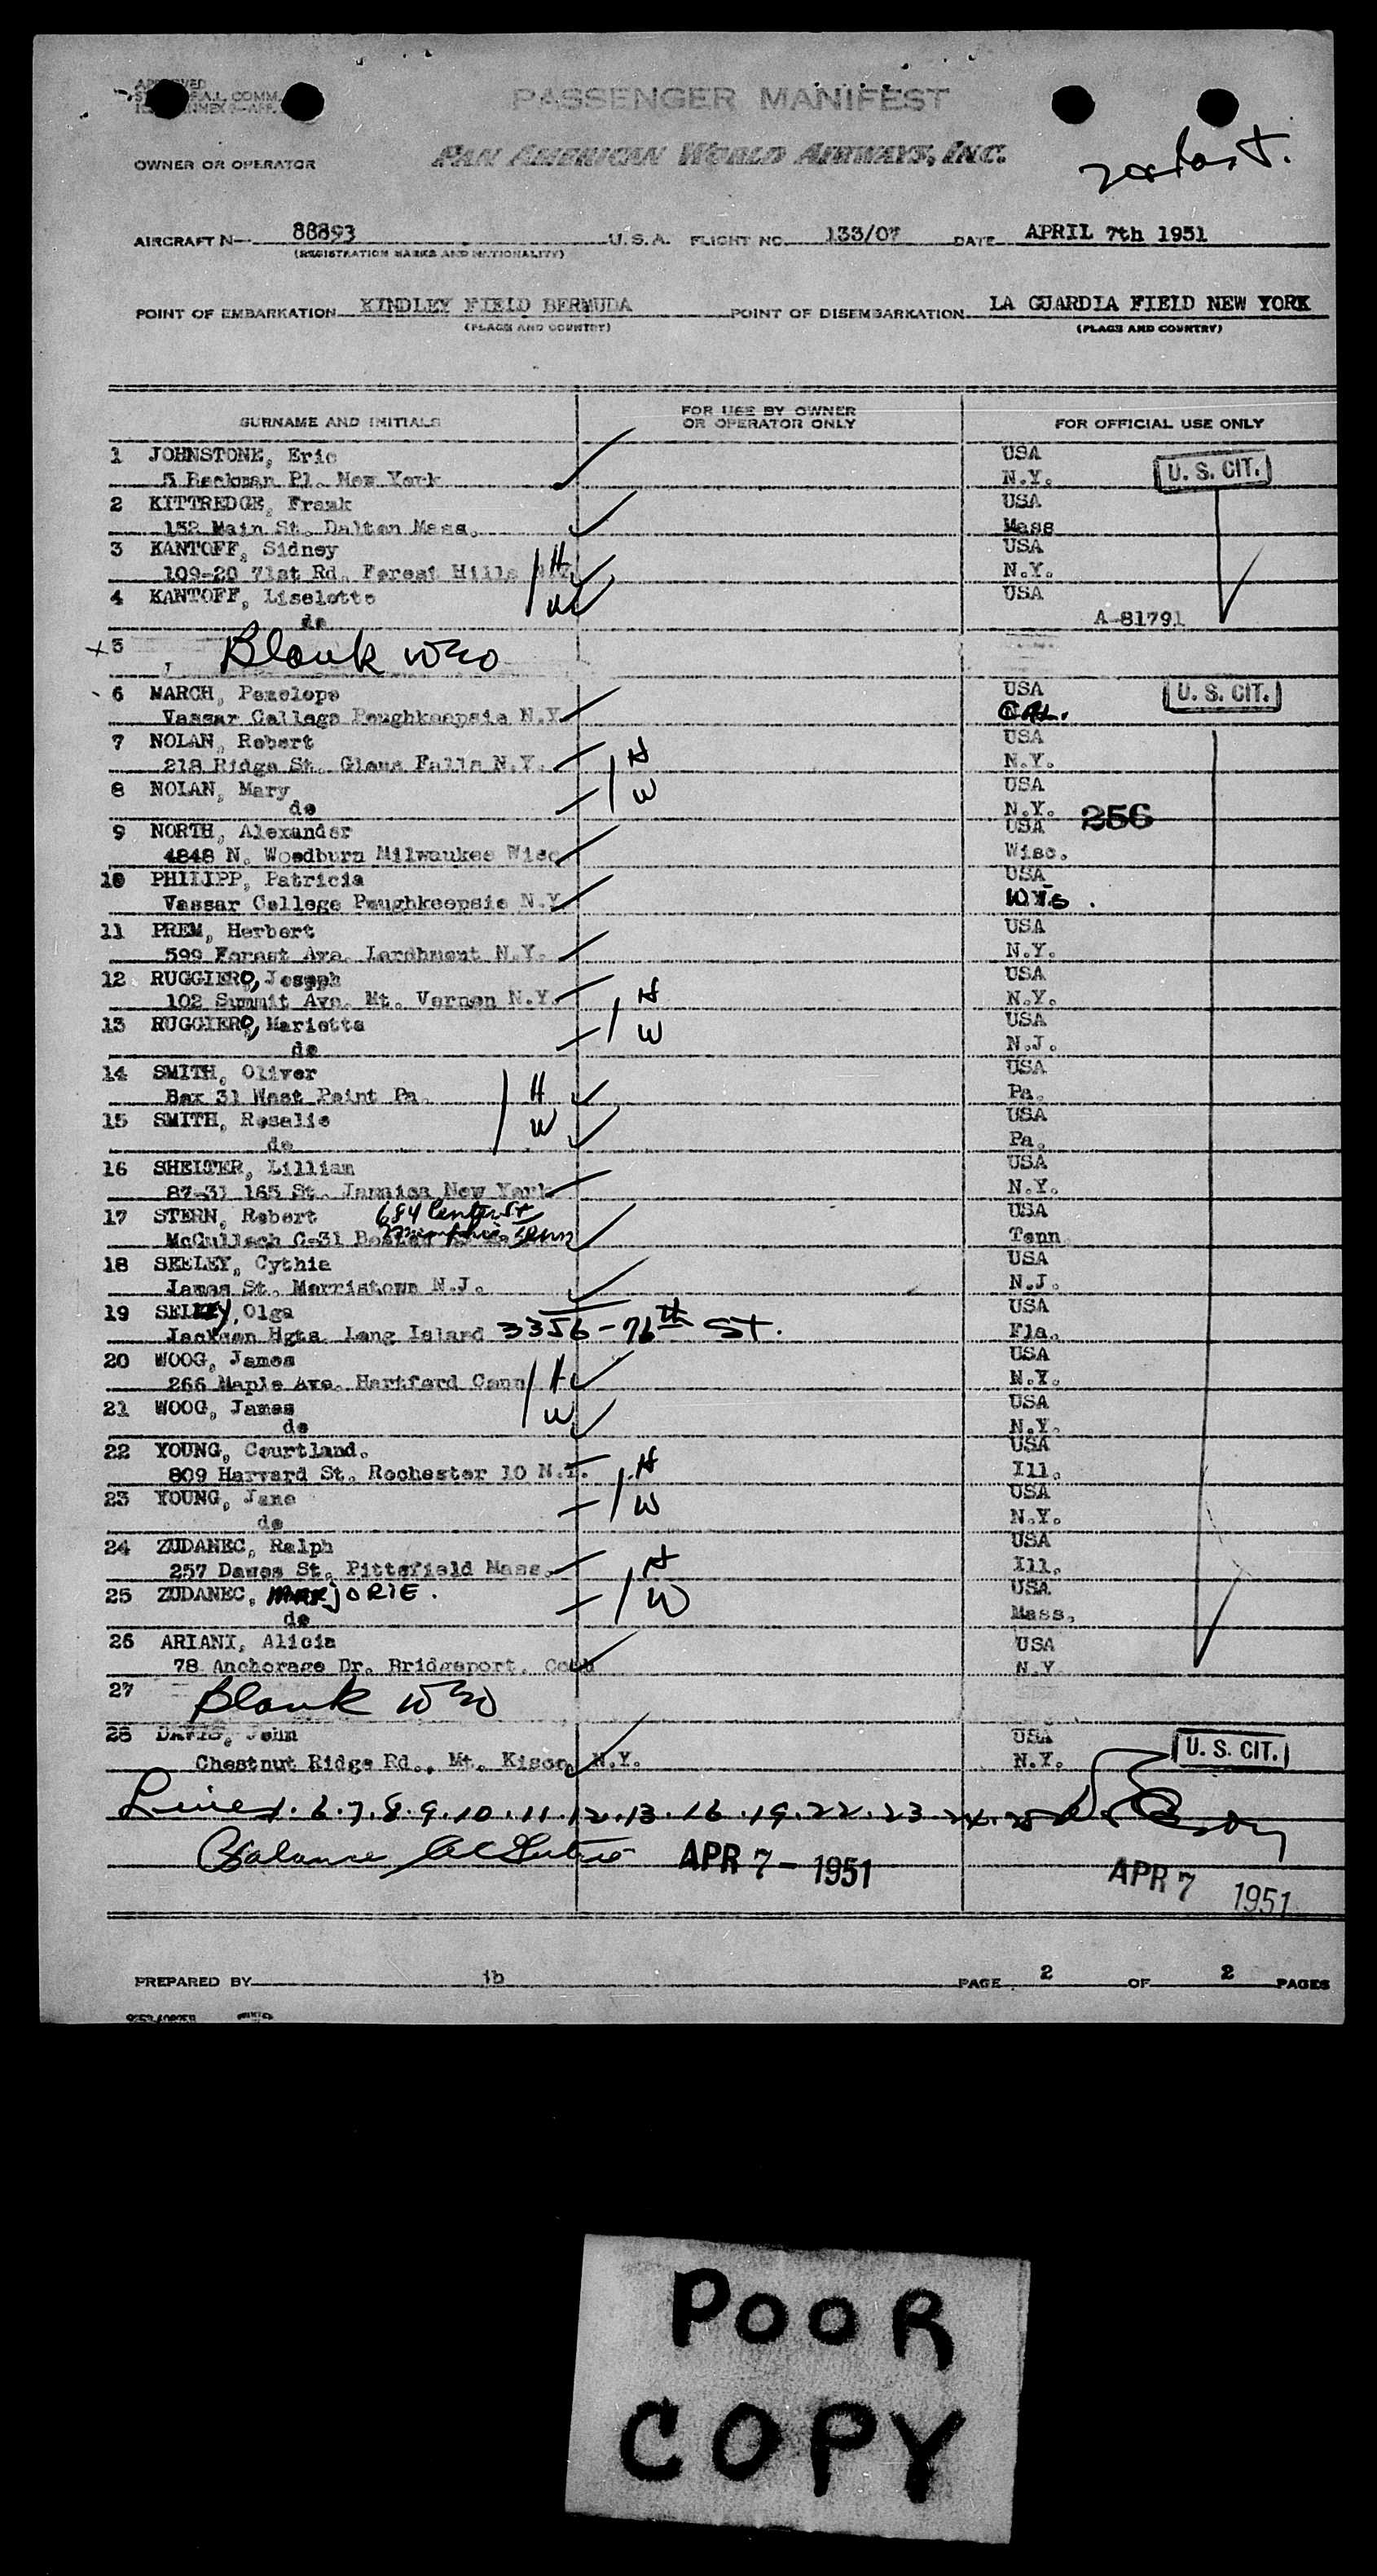 APPROVED
PASSENGER MANIFEST
OWNER OR OPERATOR PAN AMERICAN WORLD AIRWAYS, INC.
AIRCRAFT N— 88893 U.S.A. FLIGHT NO. 133/07 DATE APRIL 7th 1951
(REGISTRATION MARKS AND NATIONALITY)
POINT OF EMBARKATION KINDLEY FIELD BERMUDA POINT OF DISEMBARKATION LA GUARDIA FIELD NEW YORK
(PLACE AND COUNTRY) (PLACE AND COUNTRY)
SURNAME AND INITIALS FOR USE BY OWNER OR OPERATOR ONLY FOR OFFICIAL USE ONLY
1 JOHNSTONE, Eric USA U. S. CIT.
5 Beekman Pl. New York N.Y.
2 KITTREDGE, Frank USA
152 Main St. Dalton Mass. Mass
3 KANTOFF, Sidney H USA
109-20 71st Rd. Forest Hills N.Y. N.Y.
4 KANTOFF, Liselotte W USA
do A-81791
x 5 Blank
6 MARCH, Penelope USA U. S. CIT.
Vassar College Poughkeepsie N.Y. CAL.
7 NOLAN, Robert H USA
218 Ridge St. Glens Falls N.Y. N.Y.
8 NOLAN, Mary W USA
do N.Y. 256
9 NORTH, Alexander USA
4848 N. Woodburn Milwaukee Wisc Wisc.
10 PHILIPP, Patricia USA
Vassar College Poughkeepsie N.Y. WIS.
11 PREM, Herbert USA
599 Forest Ave. Larchmont N.Y. N.Y.
12 RUGGIERO, Joseph H USA
102 Summit Ave. Mt. Vernon N.Y. N.Y.
13 RUGGIERO, Marietta W USA
do N.J.
14 SMITH, Oliver H USA
Box 31 West Point Pa. Pa.
15 SMITH, Rosalie W USA
do Pa.
16 SHELTER, Lillian USA
87-31 165 St. Jamaica New York N.Y.
17 STERN, Robert 684 Center St USA
McCulloch C-31 Memphis Tenn Tenn
18 SEELEY, Cythia USA
James St. Morristown N.J. N.J.
19 SELLEY, Olga USA
Jackson Hgts. Long Island 3356-76th ST. Fla.
20 WOOG, James H USA
266 Maple Ave. Hartford Conn N.Y.
21 WOOG, James W USA
do N.Y.
22 YOUNG, Courtland. H USA
809 Harvard St. Rochester 10 N.Y. Ill.
23 YOUNG, Jane W USA
do N.Y.
24 ZUDANEC, Ralph H USA
257 Dawes St. Pittsfield Mass. Ill.
25 ZUDANEC, MARJORIE. W USA
do Mass.
26 ARIANI, Alicia USA
78 Anchorage Dr. Bridgeport. Conn N.Y.
27 Blank
28 DAVIS, John USA U. S. CIT.
Chestnut Ridge Rd., Mt. Kisco, N.Y. N.Y.
Lines 1.6.7.8.9.10.11.12.13.16.19.22.23.24.25
Balance APR 7 - 1951 APR 7 1951
PREPARED BY ib PAGE 2 OF 2 PAGES
POOR
COPY